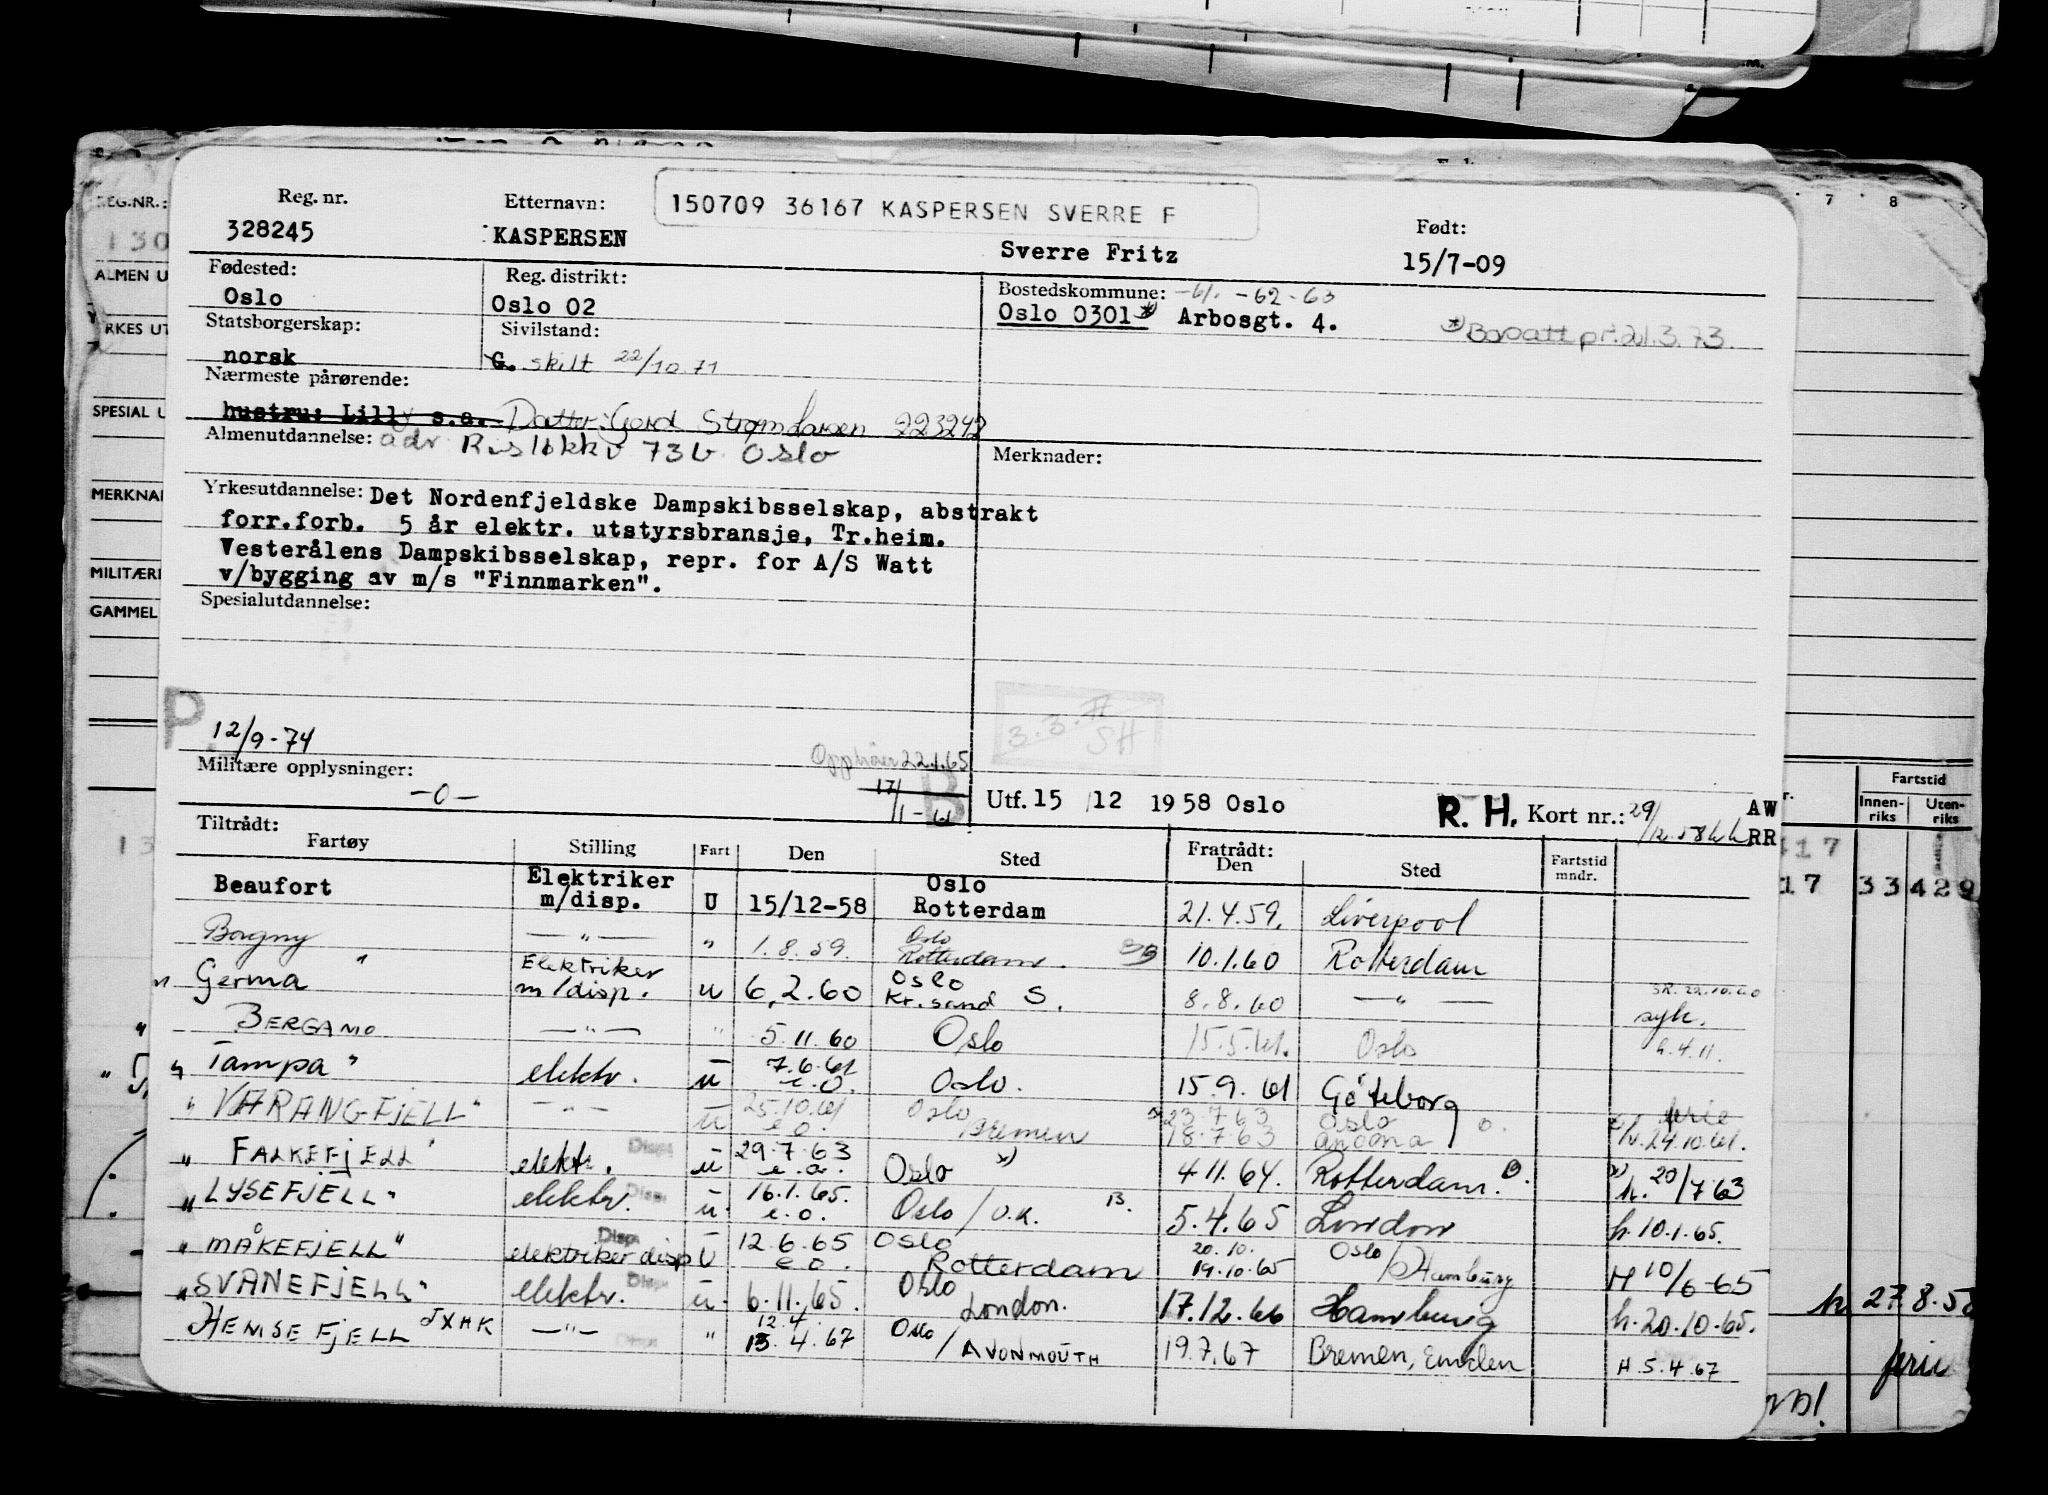 Reg. nr. Etternavn: 150709 36167 KASPERSEN SVERRE F Født:
328245 KASPERSEN Sverre Fritz 15/7-09
Fødested: Reg. distrikt: Bostedskommune: -61. -62-63
Oslo Oslo 02 Oslo 0301 *) Arbosgt. 4.
Statsborgerskap: Sivilstand:
norsk G. skilt 22/10.71
Nærmeste pårørende:
hustru: Lilly s.a. Datter: Gerd Strøm Larsen 223242
Almenutdannelse: adr. Risløkkv 73b Oslo Merknader:
Yrkesutdannelse: Det Nordenfjeldske Dampskibsselskap, abstrakt
forr.forb. 5 år elektr. utstyrsbransje, Tr.heim.
Vesterålens Dampskibsselskap, repr. for A/S Watt
v/bygging av m/s "Finnmarken".
Spesialutdannelse:
P.
3.3.77
SH
12/9-74
Opphører 22.1.65
Militære opplysninger: -0- 17/1-61 B
Utf. 15 12 1958 Oslo R. H. Kort nr.: 29/12.58 AW
RR
Tiltrådt: Fartøy Stilling Fart Den Sted Fratrådt: Den Sted Fartstid mndr.
Beaufort Elektriker m/disp. U 15/12-58 Oslo Rotterdam 21.4.59. Liverpool
Borgny " —"— " 1.8.59. Oslo Rotterdam. 10.1.60 Rotterdam
Germa Elektriker m/disp. u 6.2.60 Oslo Kr.sand S. 8.8.60 —"— SR. 22.10.60 syk.
" BERGAMO —"— " 5.11.60 Oslo 15.5.61. Oslo h.4.11.
Tampa " elektr. u 7.6.61 e.o. Oslo. 15.9.61 Göteborg ferie
" VARANGFJELL" —"— u 25.10.61 e.o. Oslo Bremen 23.7.63 18.7.63 Oslo Ancona h.24.10.61.
" FALKEFJELL" elektr. Disp. u 29.7.63 e.o. Oslo x) 4.11.64. Rotterdam. x) h. 20/7 63
" LYSEFJELL" elektr. Disp. u. 16.1.65. e.o. Oslo/U.K. B. 5.4.65 London h.10.1.65.
" MÅKEFJELL" elektriker disp Disp. U 12.6.65 e.o. Oslo Rotterdam 20.10. 19.10.65 Oslo/Hamburg H 10/6-65
" SVANEFJELL" elektr. Disp. u. 6.11.65. Oslo London. 17.12.66 Hamburg h.20.10.65.
HEMSEFJELL JXHK —"— Disp. " 12.4. 13.4.67 Oslo/AVONMOUTH 19.7.67 Bremen, Emden H.5.4.67
REG.NR.:
130
ALMEN U
YRKES UT
SPESIAL U
MERKNA
MILITÆR
GAMMEL
7 8
Fartstid
Innen-riks Uten-riks
417
17 33 429
h 27.8.5
ferie